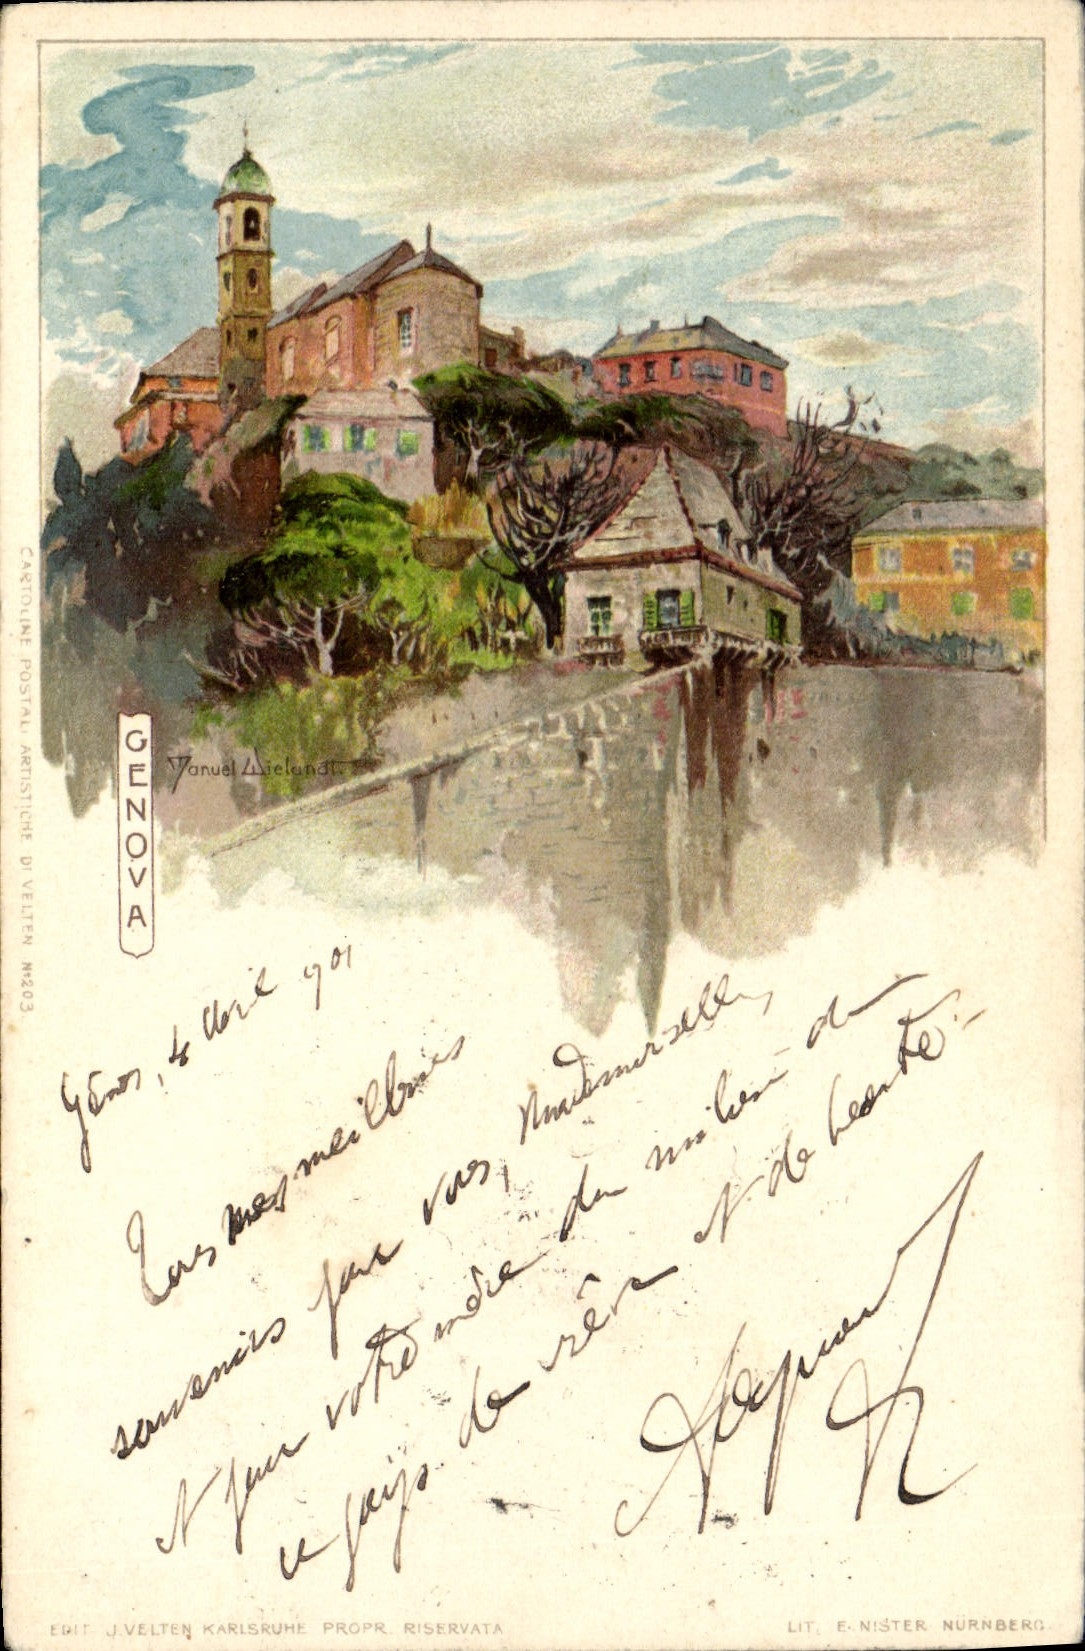 GENOVA
Manuel Wielandt.
CARTOLINE POSTALI ARTISTICHE DI VELTEN No 203
Gênes, 4 Avril 901
Tous mes meilleurs
souvenirs pour vous, Mademoiselle,
et pour votre mère du milieu de
ce pays de rêve et de beauté.
EDIT J. VELTEN KARLSRUHE PROPR. RISERVATA
LIT. E. NISTER NÜRNBERG.